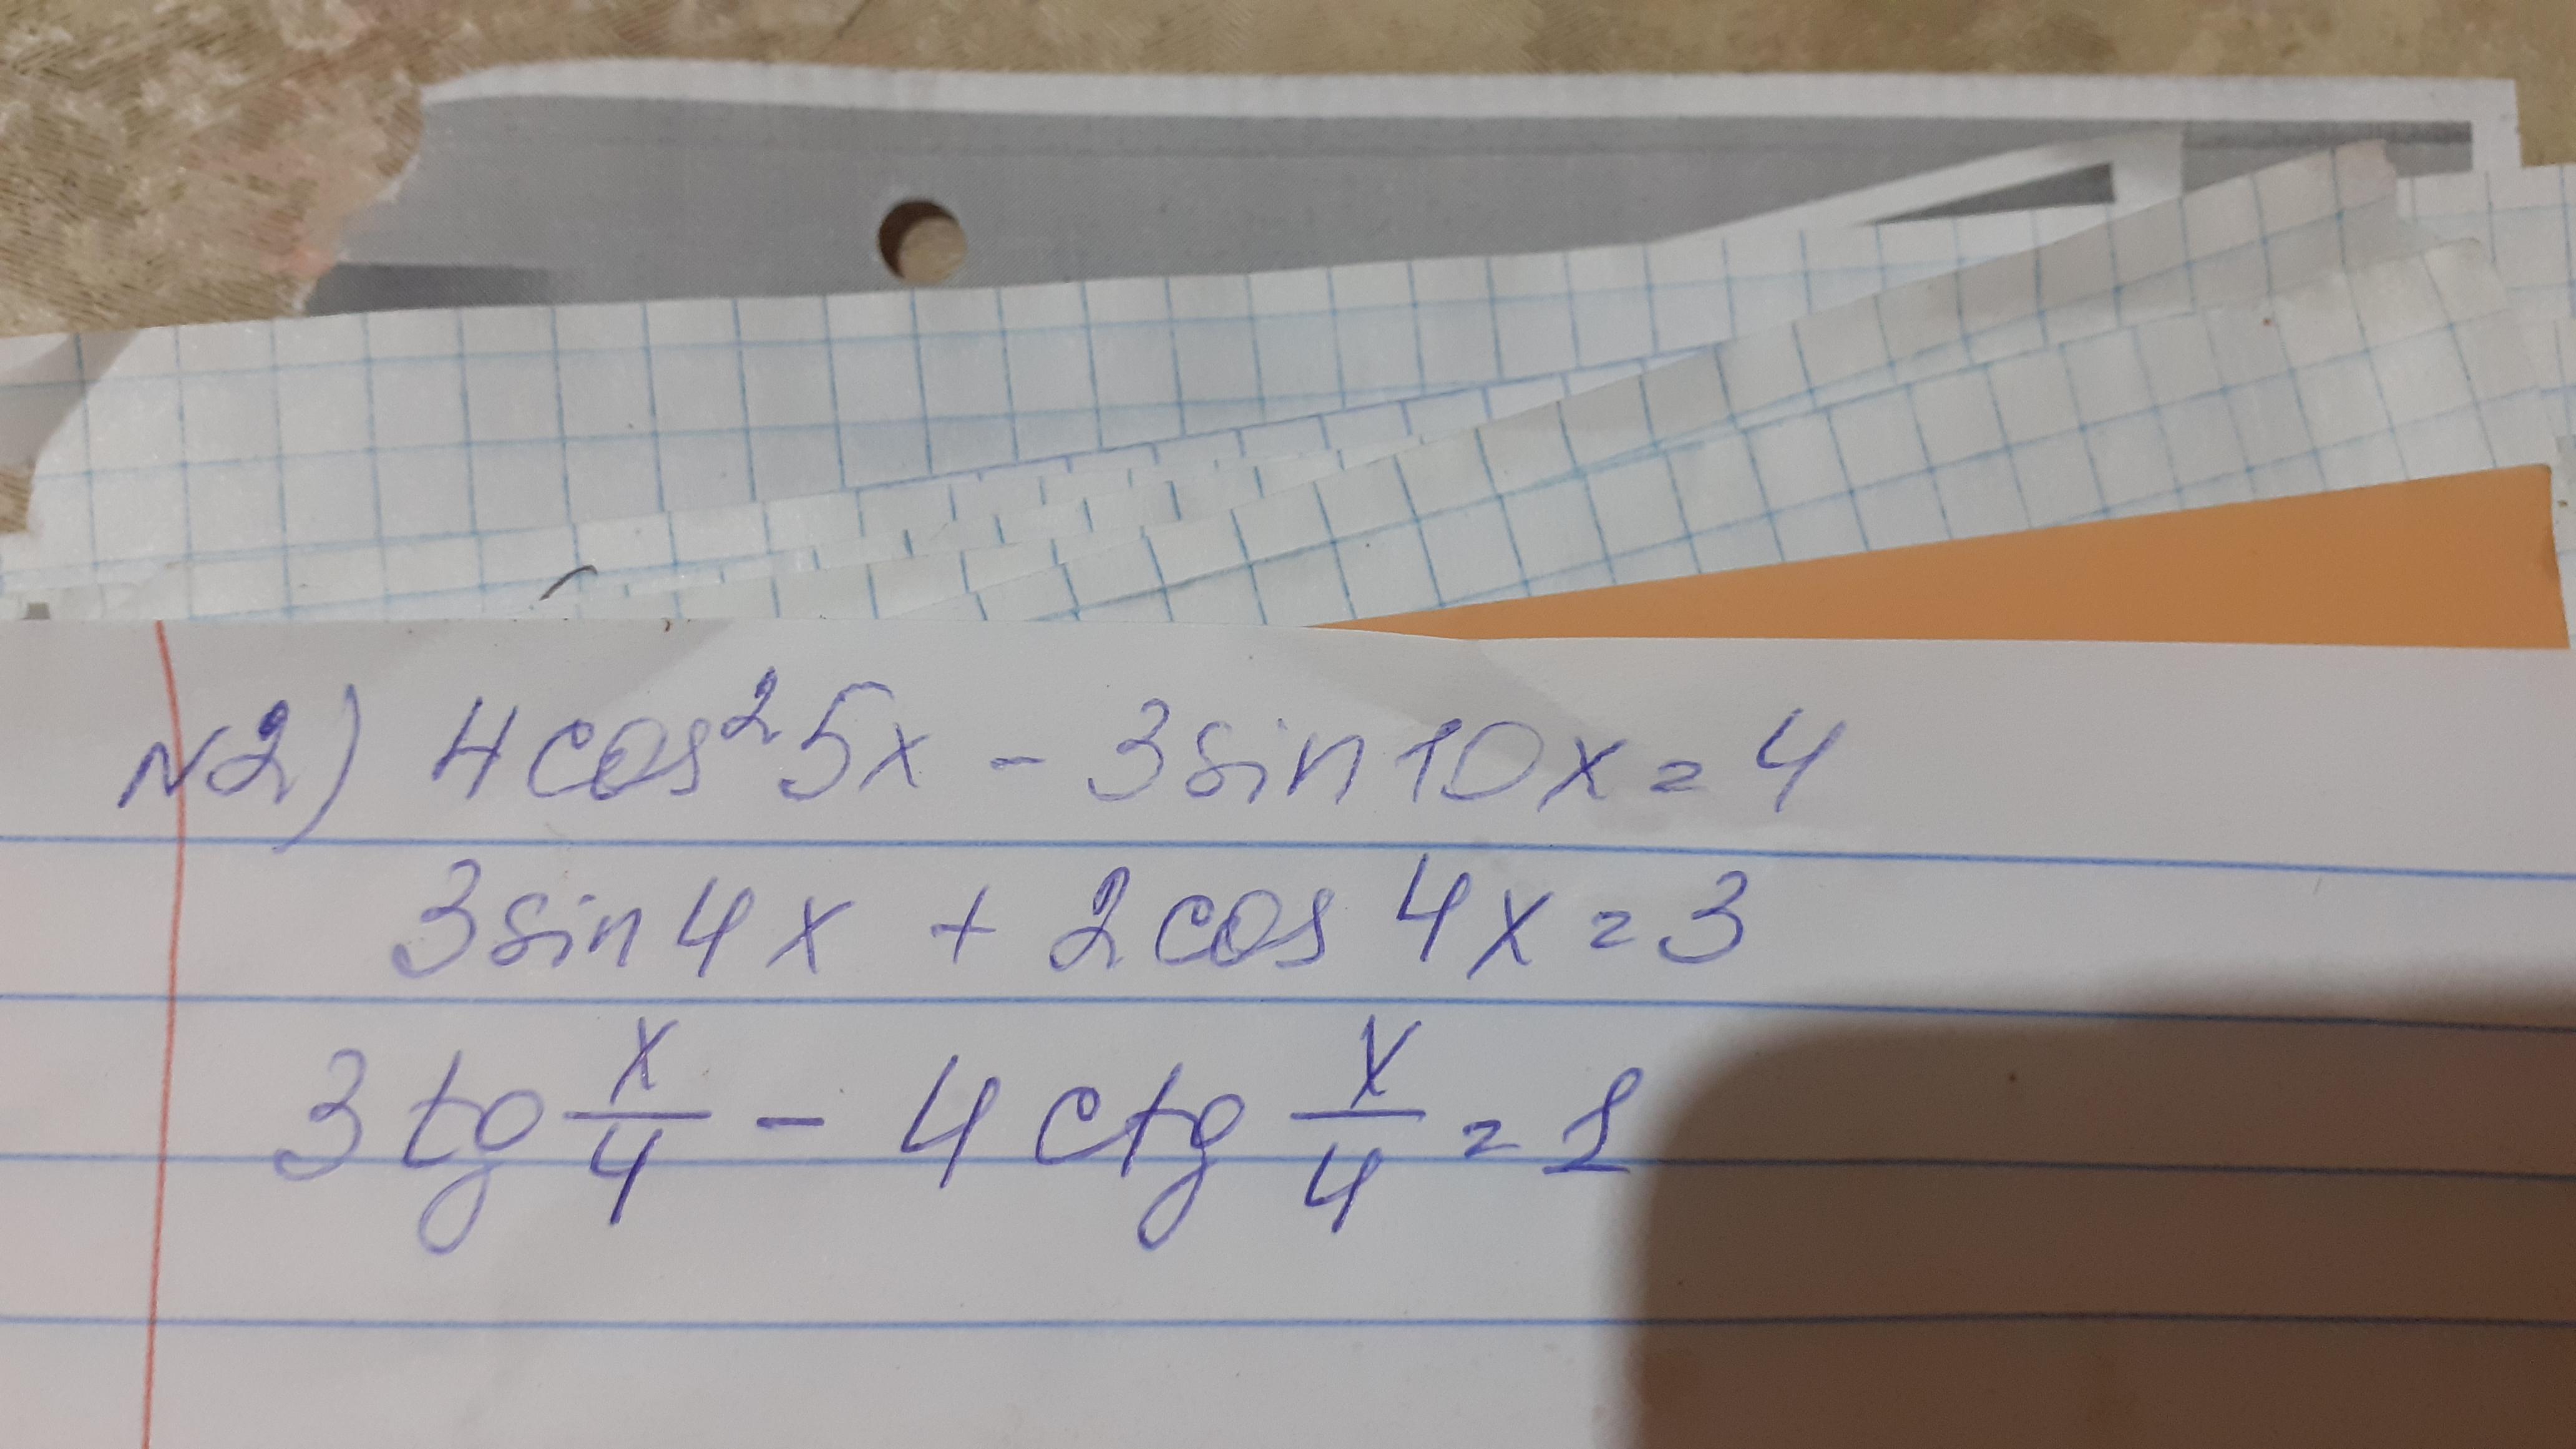 N2) 4cos²5x - 3sin10x = 4
3sin4x + 2cos4x = 3
3tg x/4 - 4ctg x/4 = 1